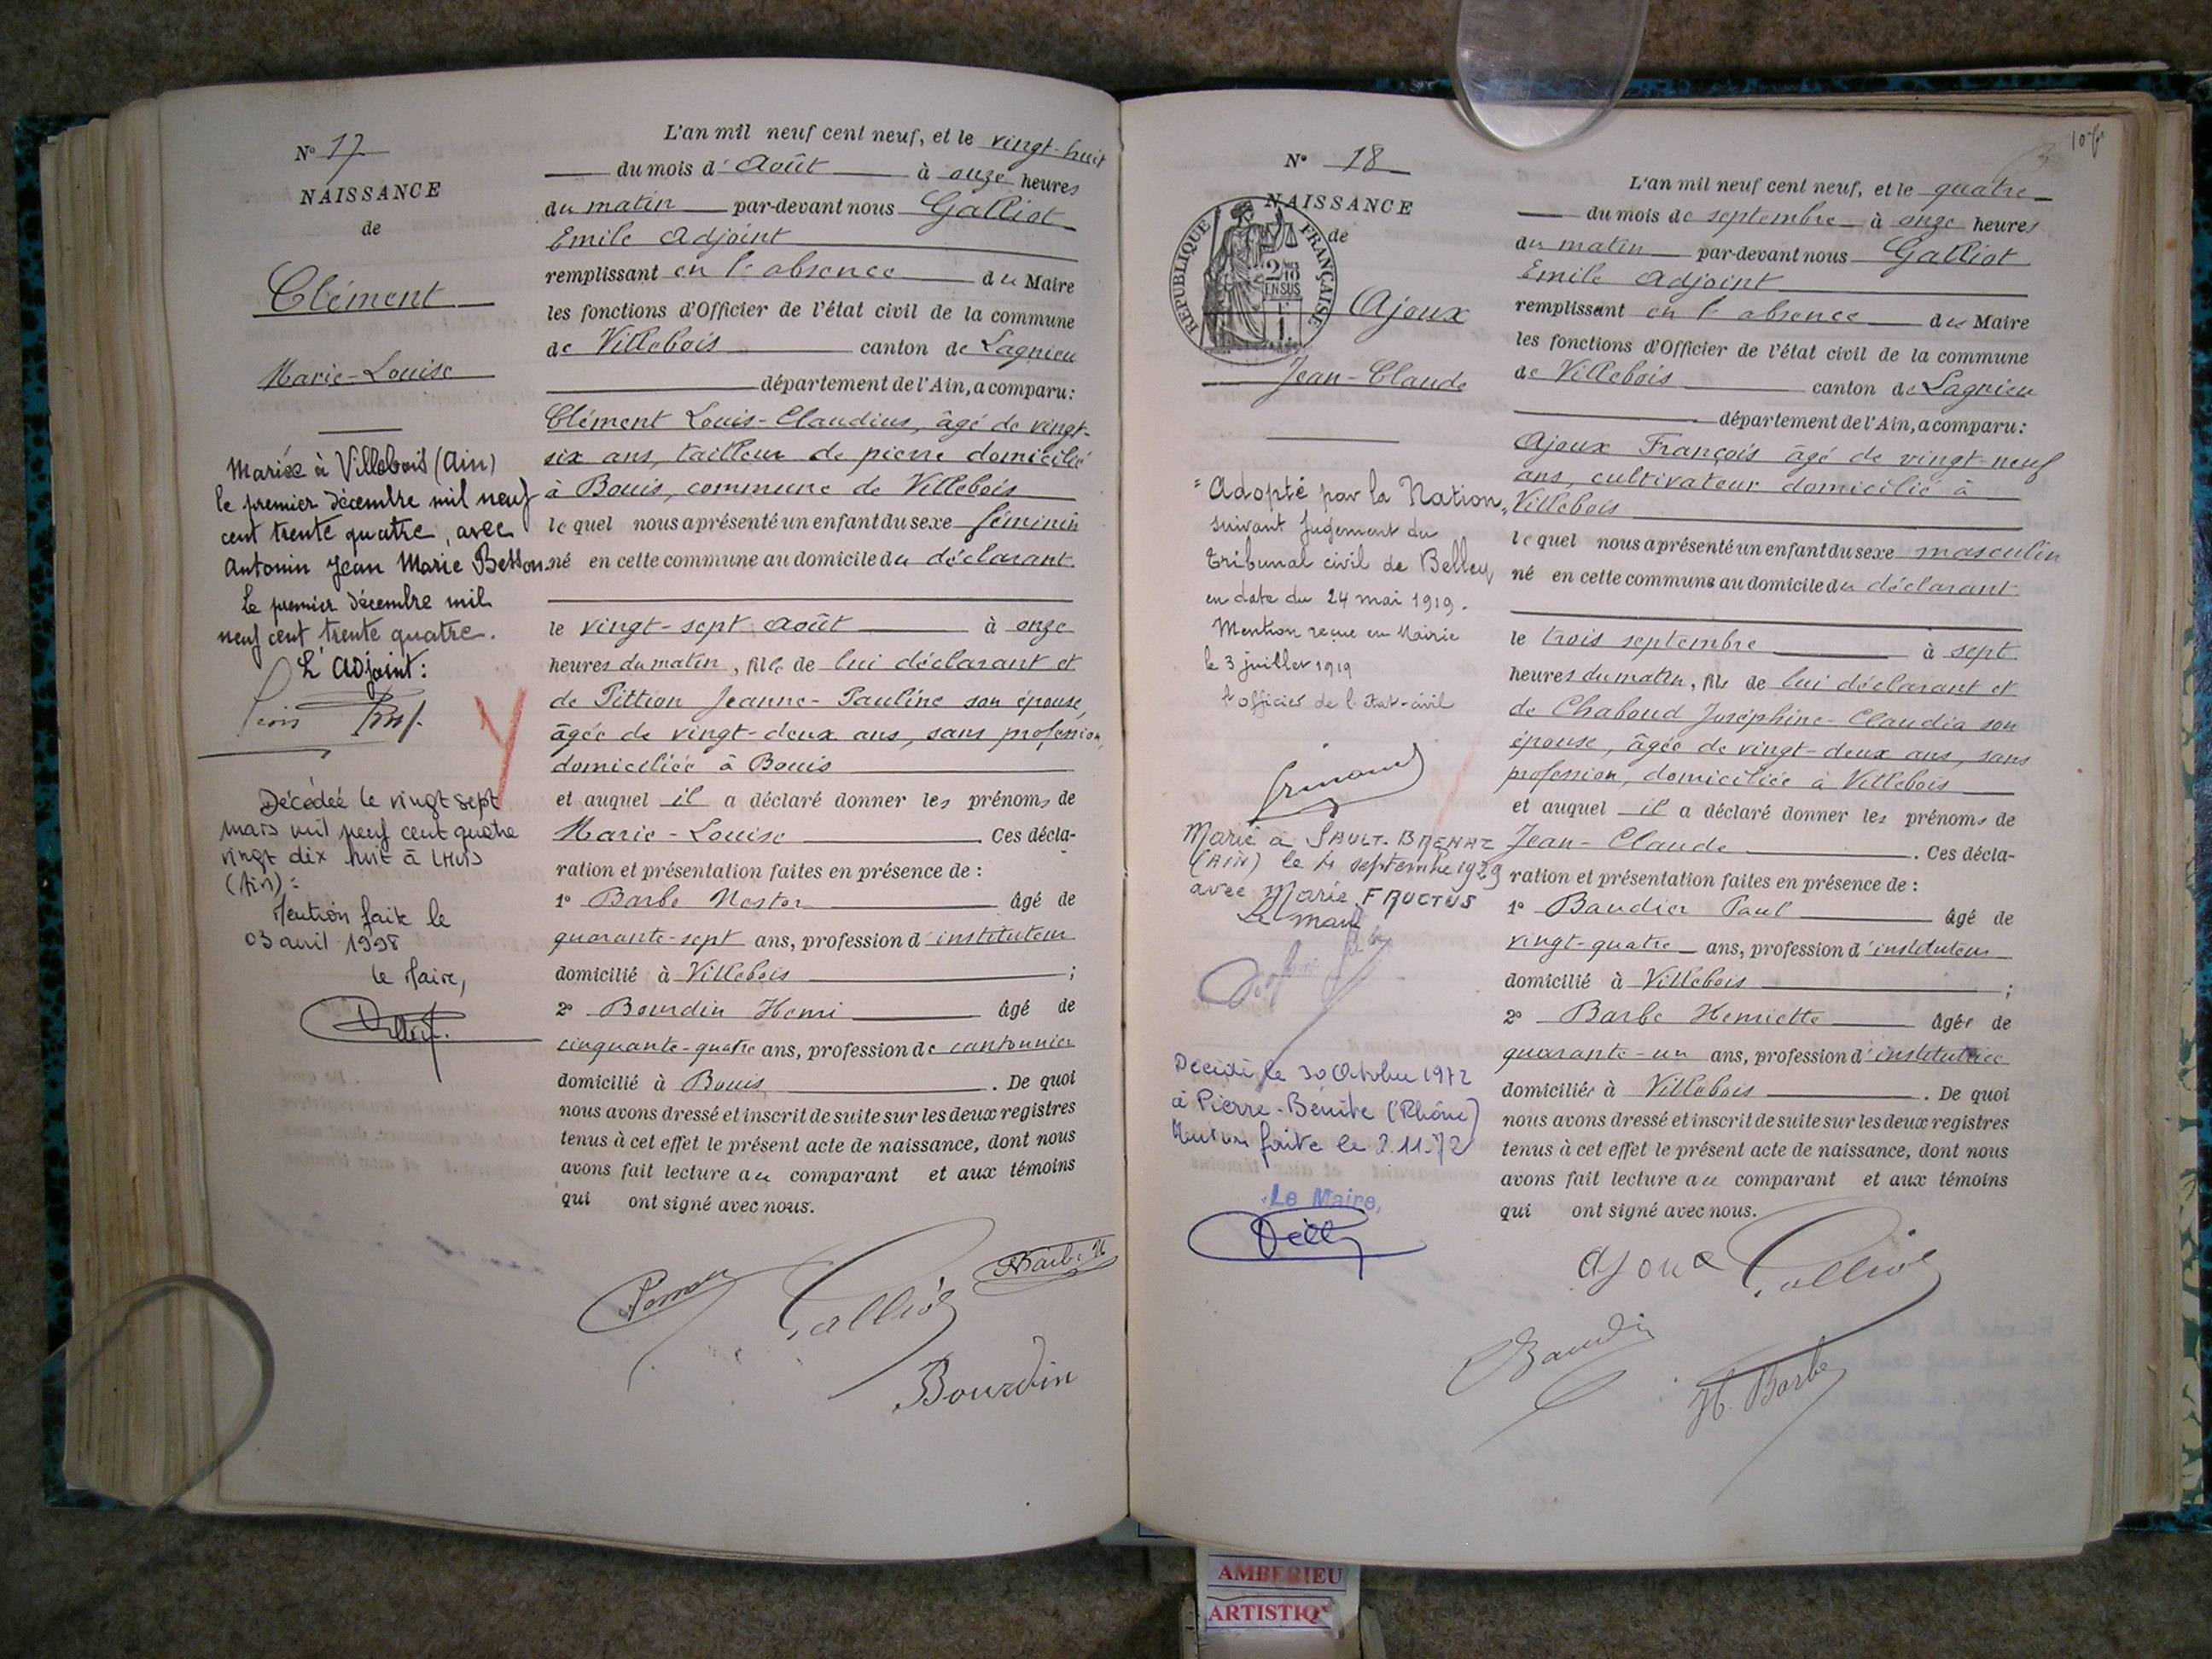 N° 17
NAISSANCE
de
Clément
Marie-Louise
Mariée à Villebois (Ain)
le premier décembre mil neuf
cent trente quatre, avec
Antonin Jean Marie Betton.
Le premier décembre mil
neuf cent trente quatre.
L'Adjoint:
Décédée le vingt sept
mars mil neuf cent quatre
vingt dix huit à LHUIS
(Ain) =
Mention faite le
03 avril 1998
le Maire,
L'an mil neuf cent neuf, et le vingt-huit
du mois d' Août à onze heures
du matin par-devant nous Galliot
Emile Adjoint
remplissant en l'absence du Maire
les fonctions d'Officier de l'état civil de la commune
de Villebois canton de Lagnieu
département de l'Ain, a comparu:
Clément Louis-Claudius, âgé de vingt-
six ans, tailleur de pierre domicilié
à Bouis, commune de Villebois
lequel nous a présenté un enfant du sexe féminin
né en cette commune au domicile du déclarant
le vingt-sept Août à onze
heures du matin, fille de lui déclarant et
de Pittion Jeanne-Pauline son épouse,
âgée de vingt-deux ans, sans profession,
domiciliée à Bouis
et auquel il a déclaré donner les prénoms de
Marie-Louise Ces décla-
ration et présentation faites en présence de :
1° Barbe Nestor âgé de
quarante-sept ans, profession d'instituteur
domicilié à Villebois ;
2° Bourdin Henri âgé de
cinquante-quatre ans, profession de cantonnier
domicilié à Bouis . De quoi
nous avons dressé et inscrit de suite sur les deux registres
tenus à cet effet le présent acte de naissance, dont nous
avons fait lecture au comparant et aux témoins
qui ont signé avec nous.
Galliot
Barbe N
Bourdin
N° 18
NAISSANCE
de
RÉPUBLIQUE FRANÇAISE
2/10 EN SUS
Ajoux
Jean-Claude
"Adopté par la Nation"
suivant jugement du
Tribunal civil de Belley
en date du 24 mai 1919.
Mention reçue en Mairie
le 3 juillet 1919
l'officier de l'état-civil
Marié à SAULT-BRENAZ
(AIN) le 14 septembre 1929
avec Marie FRUCTUS
Le maire
Décédé le 30 Octobre 1972
à Pierre-Bénite (Rhône)
Mention faite le 2.11.72
Le Maire,
L'an mil neuf cent neuf, et le quatre
du mois de septembre à onze heures
du matin par-devant nous Galliot
Emile Adjoint
remplissant en l'absence du Maire
les fonctions d'Officier de l'état civil de la commune
de Villebois canton de Lagnieu
département de l'Ain, a comparu:
Ajoux François âgé de vingt-neuf
ans, cultivateur domicilié à
Villebois
lequel nous a présenté un enfant du sexe masculin
né en cette commune au domicile du déclarant
le trois septembre à sept
heures du matin, fils de lui déclarant et
de Chaboud Joséphine-Claudia son
épouse, âgée de vingt-deux ans, sans
profession, domiciliée à Villebois
et auquel il a déclaré donner les prénoms de
Jean-Claude . Ces décla-
ration et présentation faites en présence de :
1° Baudier Paul âgé de
vingt-quatre ans, profession d'instituteur
domicilié à Villebois ;
2° Barbe Henriette âgée de
quarante-un ans, profession d'institutrice
domiciliée à Villebois . De quoi
nous avons dressé et inscrit de suite sur les deux registres
tenus à cet effet le présent acte de naissance, dont nous
avons fait lecture au comparant et aux témoins
qui ont signé avec nous.
Ajoux Galliot
H. Barbe
AMBERIEU
ARTISTIQ